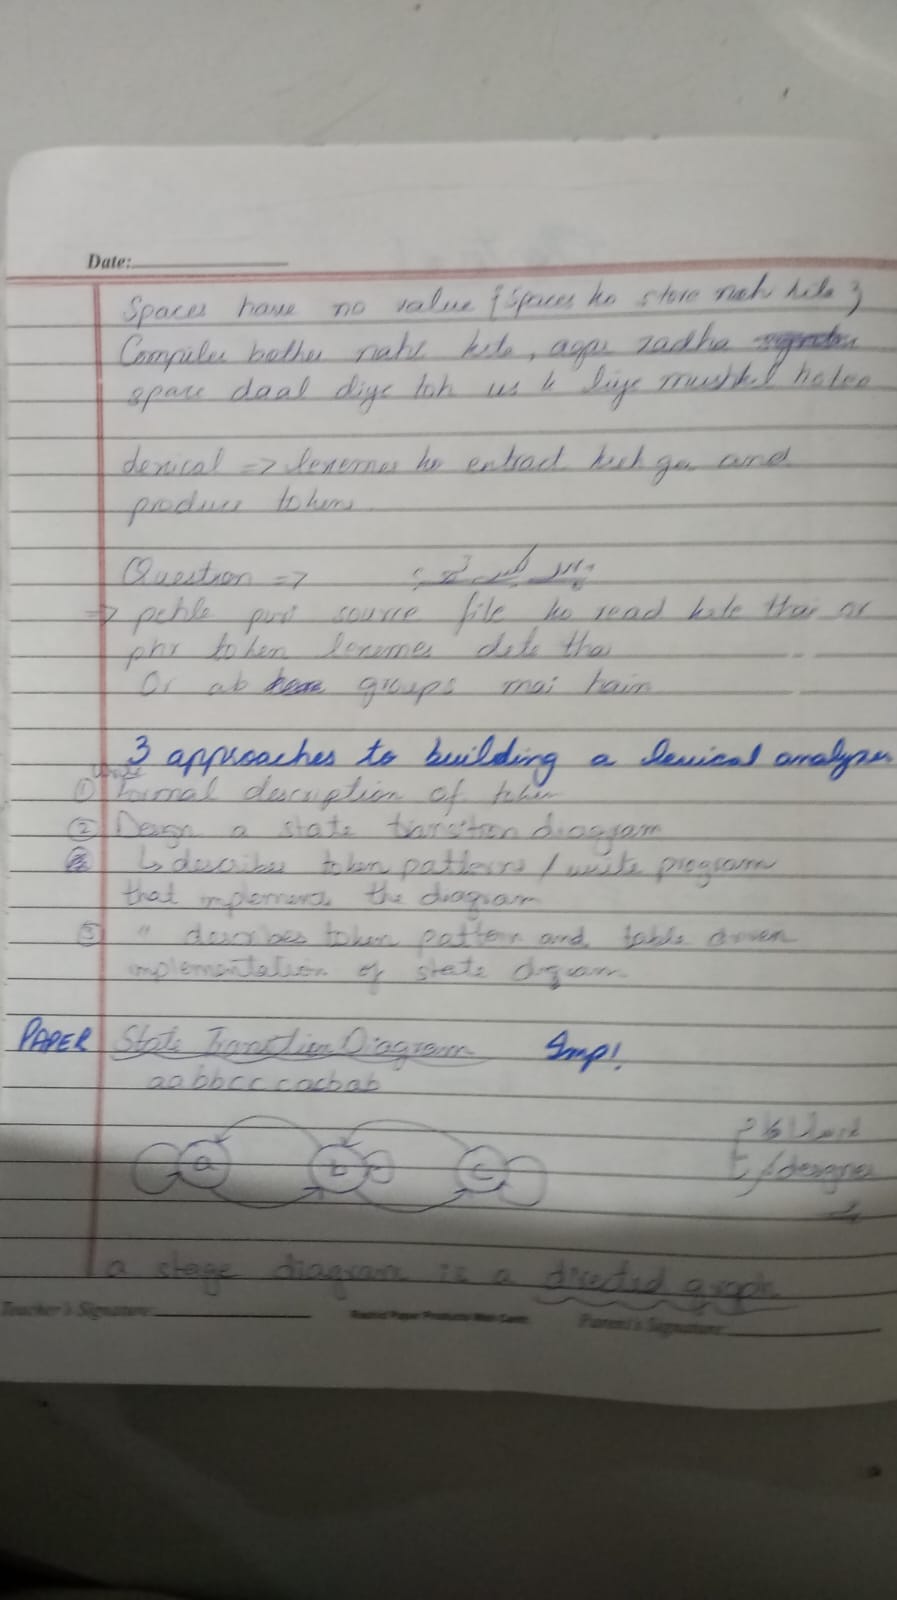 Date:
Spaces have no value { Spaces ko store nah kite }
Compiler bother nahi kite, agar zadha
space daal diye toh us k liye mushkil hotee
lexical => lexemes ko extract kreh ga and
produce tokens.
Question =>
=> pehle puri source file ko read kite thai or
phr token lexemes dete thai
Or ab groups mai hain
3 approaches to building a lexical analyzer
write
① Formal description of token
② Design a state transition diagram
↳ describes token patterns / write program
that implements the diagram
③ " describes token pattern and table driven
implementation of state digram
PAPER State Transition Diagram Imp!
aabbcc cacbab
a b c
/designer
a stage diagram is a directed graph
Teacher's Signature: Parent's Signature: